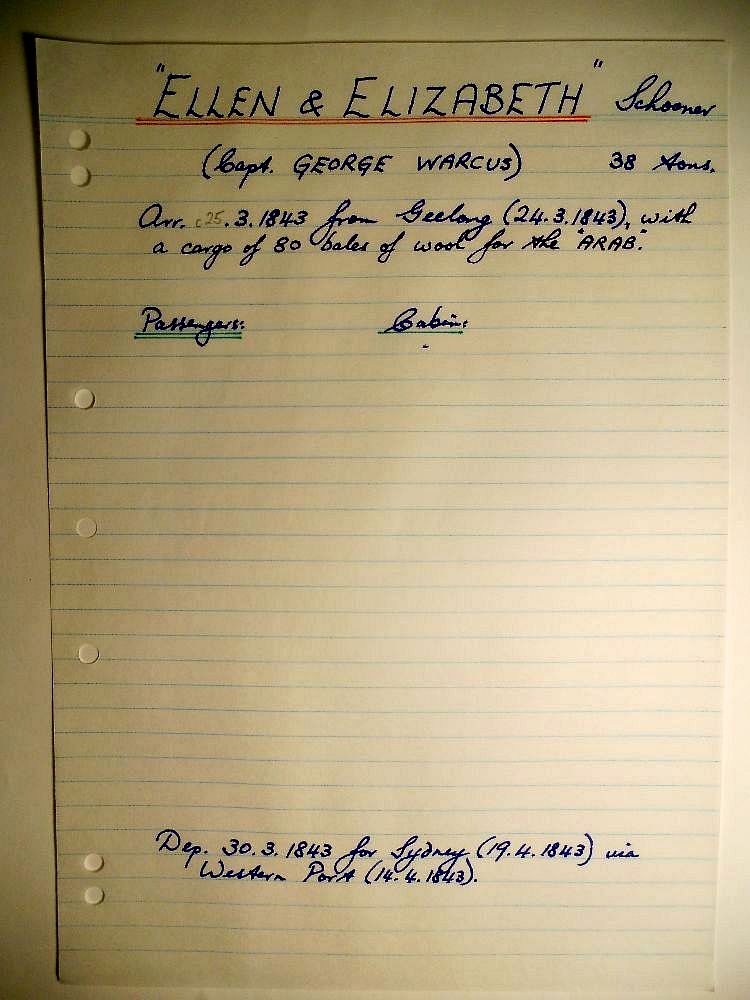 "ELLEN & ELIZABETH" Schooner
(Capt. GEORGE WARCUS) 38 tons.
Arr. c25.3.1843 from Geelong (24.3.1843), with
a cargo of 80 bales of wool for the "ARAB".
Passengers: Cabin:
-
Dep. 30.3.1843 for Sydney (19.4.1843) via
Western Port (14.4.1843).